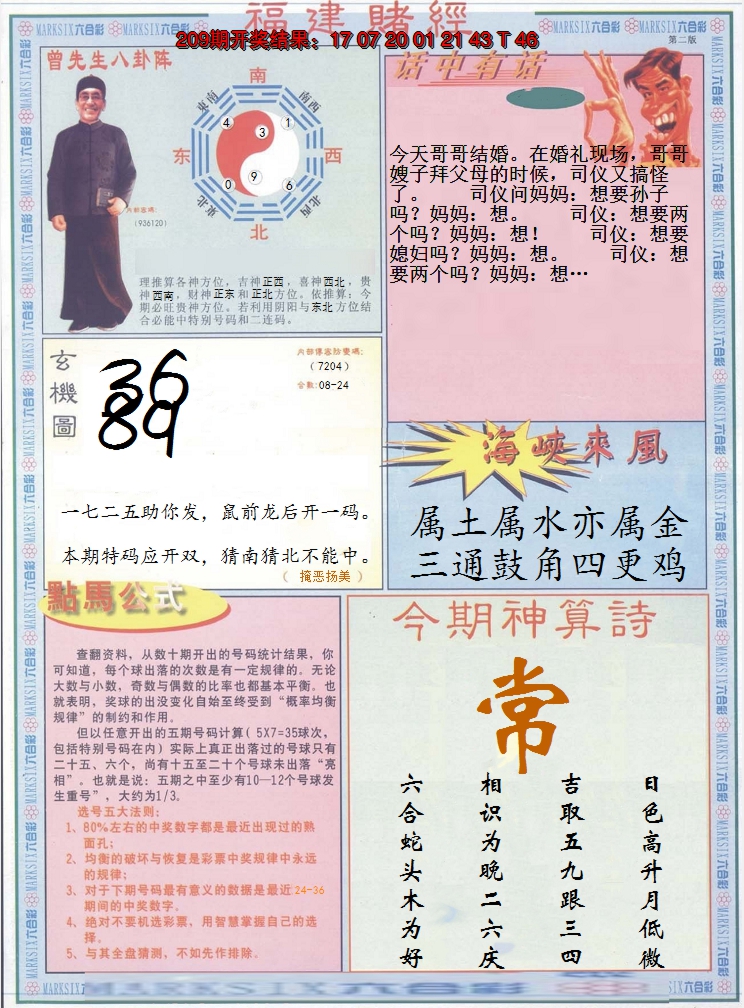 福建賭經
209期开奖结果：17 07 20 01 21 43 T 46
MARKSIX六合彩 MARKSIX六合彩 MARKSIX六合彩 MARKSIX六合彩
第二版
曾先生八卦阵
南
東南 南西
4 3 1
东 西
0 9 6
東北 北西
北
内部密碼:
(936120)
理推算各神方位，吉神正西，喜神西北，贵
神西南，财神正东和正北方位。依推算：今
期必旺贵神方位。若利用阴阳与东北方位结
合必能中特别号码和二连码。
话中有话
今天哥哥结婚。在婚礼现场，哥哥
嫂子拜父母的时候，司仪又搞怪
了。 司仪问妈妈：想要孙子
吗？妈妈：想。 司仪：想要两
个吗？妈妈：想！ 司仪：想要
媳妇吗？妈妈：想。 司仪：想
要两个吗？妈妈：想…
玄機圖
36
89
(7204)
合数:08-24
一七二五助你发，鼠前龙后开一码。
本期特码应开双，猜南猜北不能中。
（ 掩恶扬美 ）
海峽來風
属土属水亦属金
三通鼓角四更鸡
點馬公式
查翻资料，从数十期开出的号码统计结果，你
可知道，每个球出落的次数是有一定规律的。无论
大数与小数，奇数与偶数的比率也都基本平衡。也
就表明，奖球的出没变化自始至终受到“概率均衡
规律”的制约和作用。
但以任意开出的五期号码计算( 5X7=35球次，
包括特别号码在内) 实际上真正出落过的号球只有
二十五、六个，尚有十五至二十个号球未出落“亮
相”。也就是说：五期之中至少有10—12个号球发
生重号”，大约为1/3。
选号五大法则：
1、80%左右的中奖数字都是最近出现过的熟
面孔；
2、均衡的破坏与恢复是彩票中奖规律中永远
的规律；
3、对于下期号码最有意义的数据是最近24-36
期间的中奖数字。
4、绝对不要机选彩票，用智慧掌握自己的选
择。
5、与其全盘猜测，不如先作排除。
今期神算詩
常
日色高升月低微
吉取五九跟三四
相识为晚二六庆
六合蛇头木为好